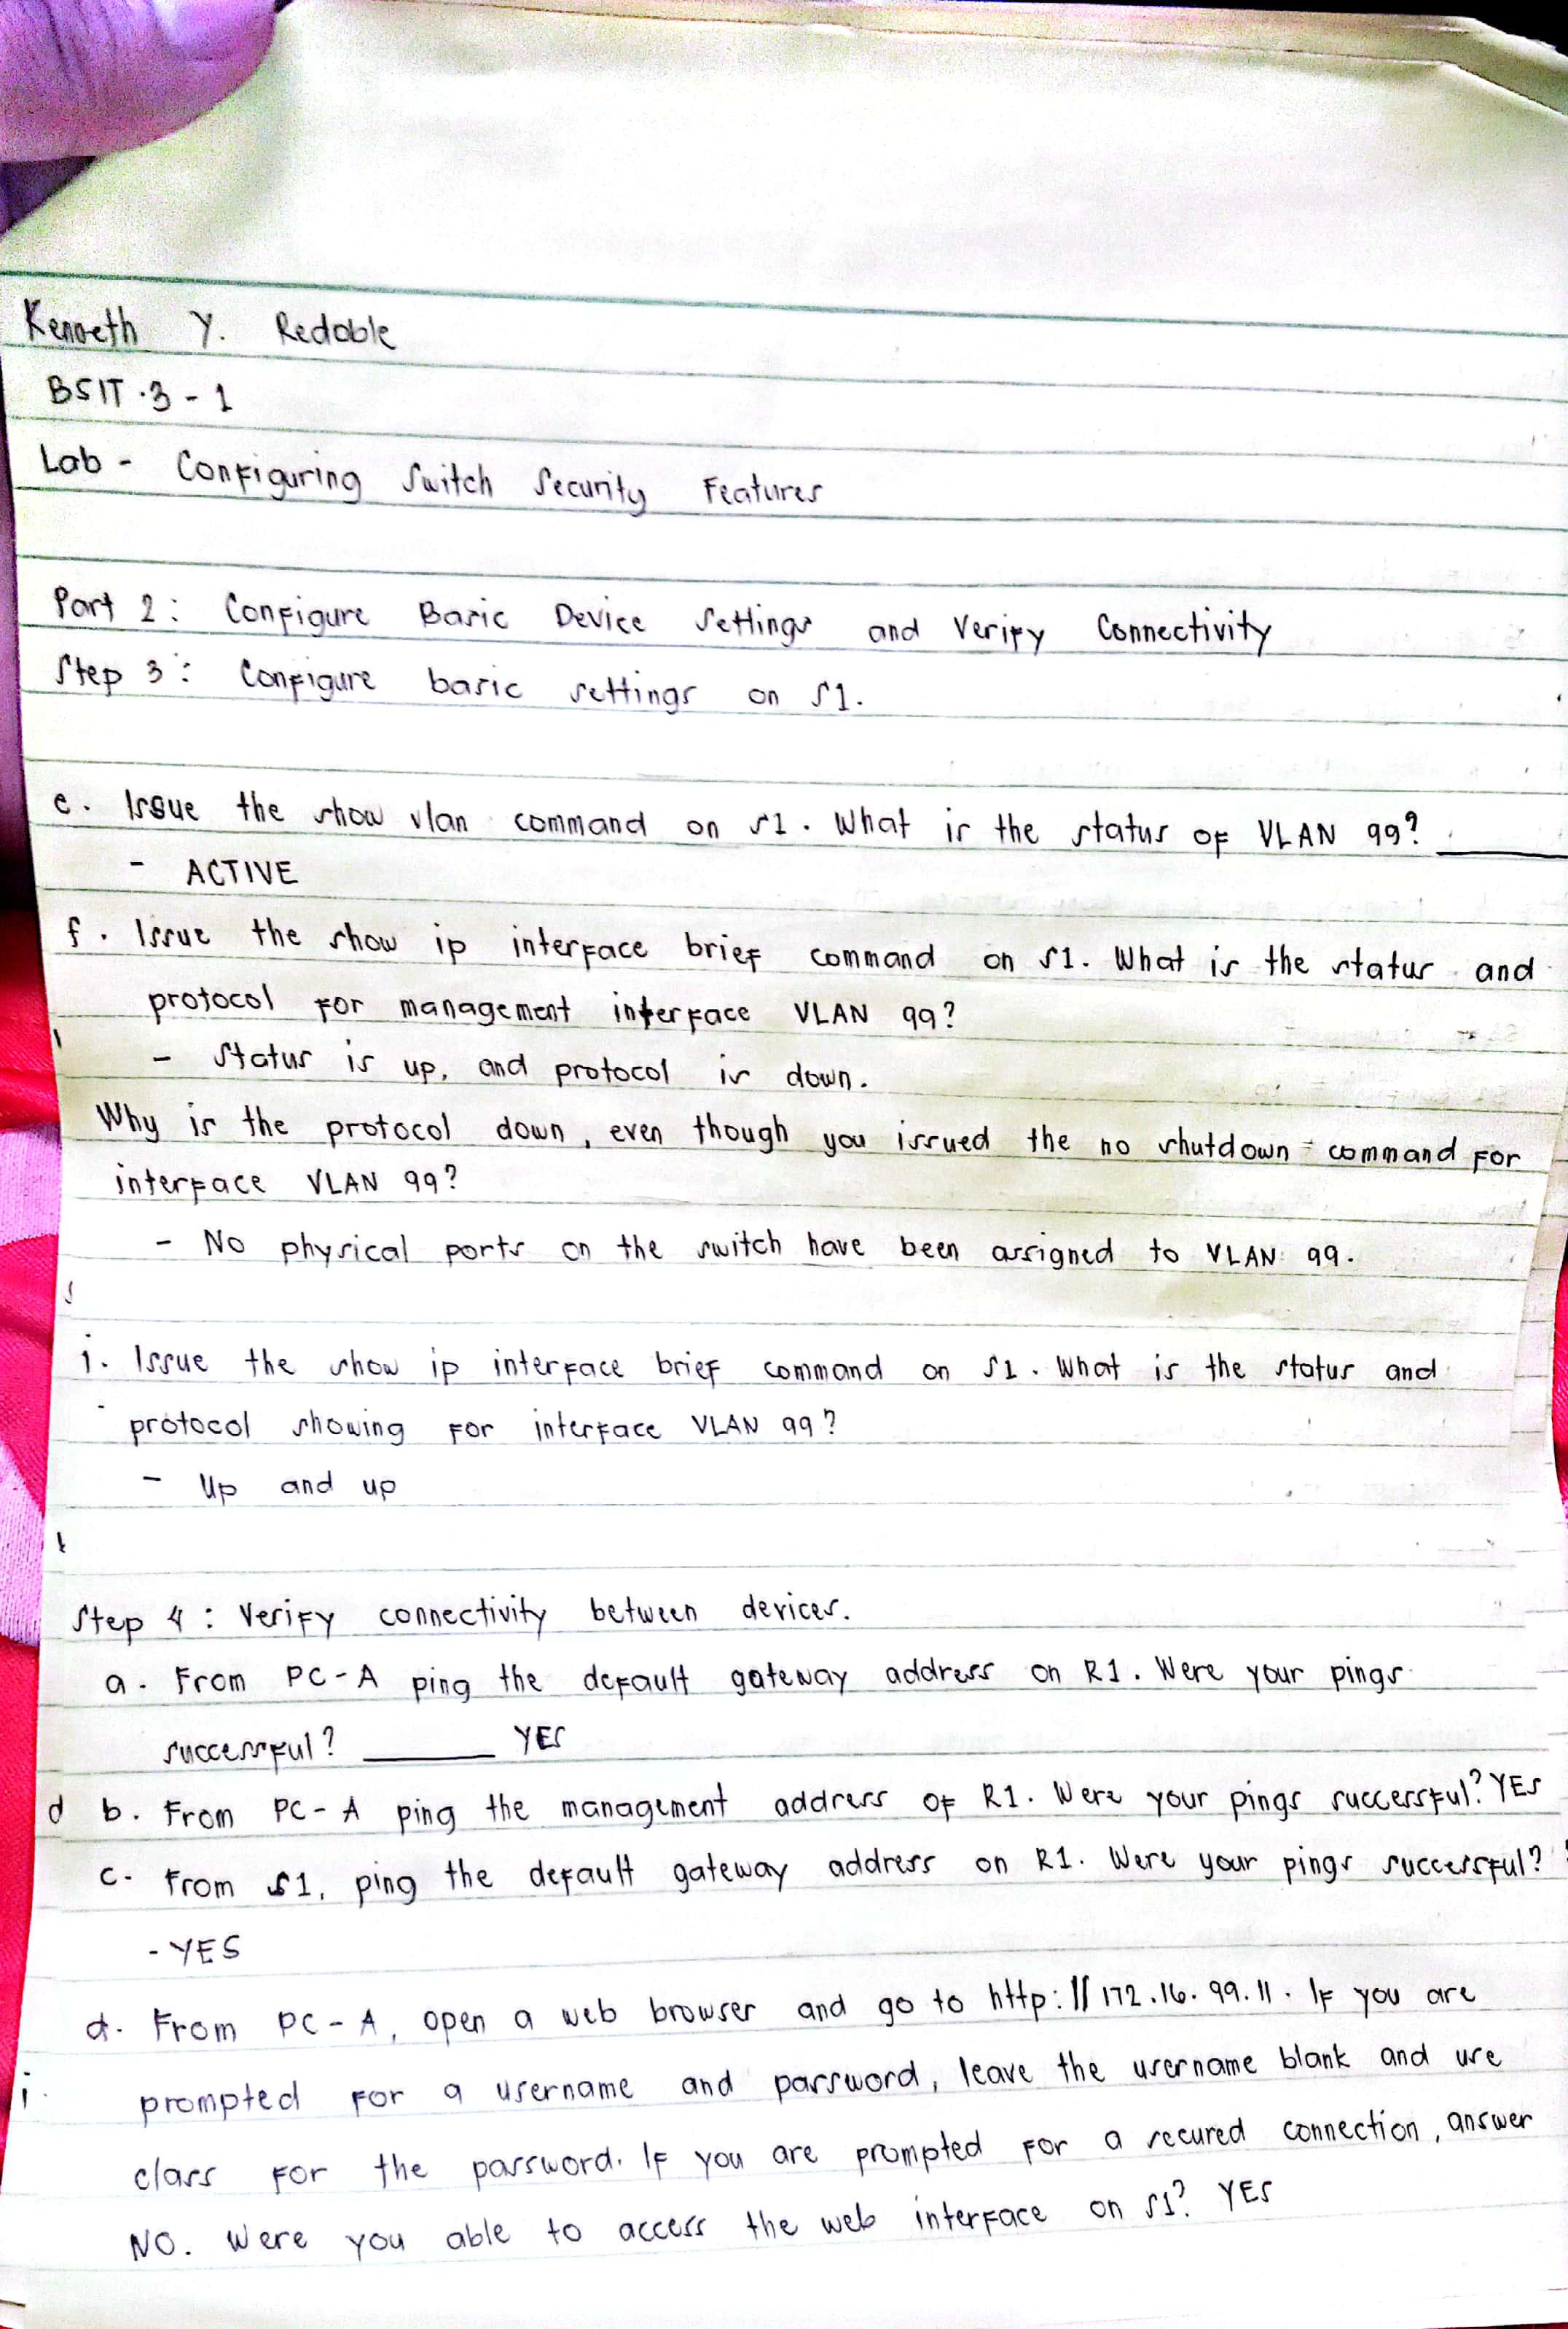 Kenneth Y. Redoble
BSIT-3-1
Lab - Configuring Switch Security Features
Part 2: Configure Basic Device Settings and Verify Connectivity
Step 3: Configure basic settings on S1.
e. Issue the show vlan command on S1. What is the status of VLAN 99? ______
- ACTIVE
f. Issue the show ip interface brief command on S1. What is the status and
protocol for management interface VLAN 99?
- Status is up, and protocol is down.
Why is the protocol down, even though you issued the no shutdown command for
interface VLAN 99?
- No physical ports on the switch have been assigned to VLAN 99.
i. Issue the show ip interface brief command on S1. What is the status and
protocol showing for interface VLAN 99?
- Up and up
Step 4: Verify connectivity between devices.
a. From PC-A ping the default gateway address on R1. Were your pings
successful? ______ YES
b. From PC-A ping the management address of R1. Were your pings successful? YES
c. From S1, ping the default gateway address on R1. Were your pings successful?
- YES
d. From PC-A, open a web browser and go to http://172.16.99.11. If you are
prompted for a username and password, leave the username blank and use
class for the password. If you are prompted for a secured connection, answer
NO. Were you able to access the web interface on S1? YES